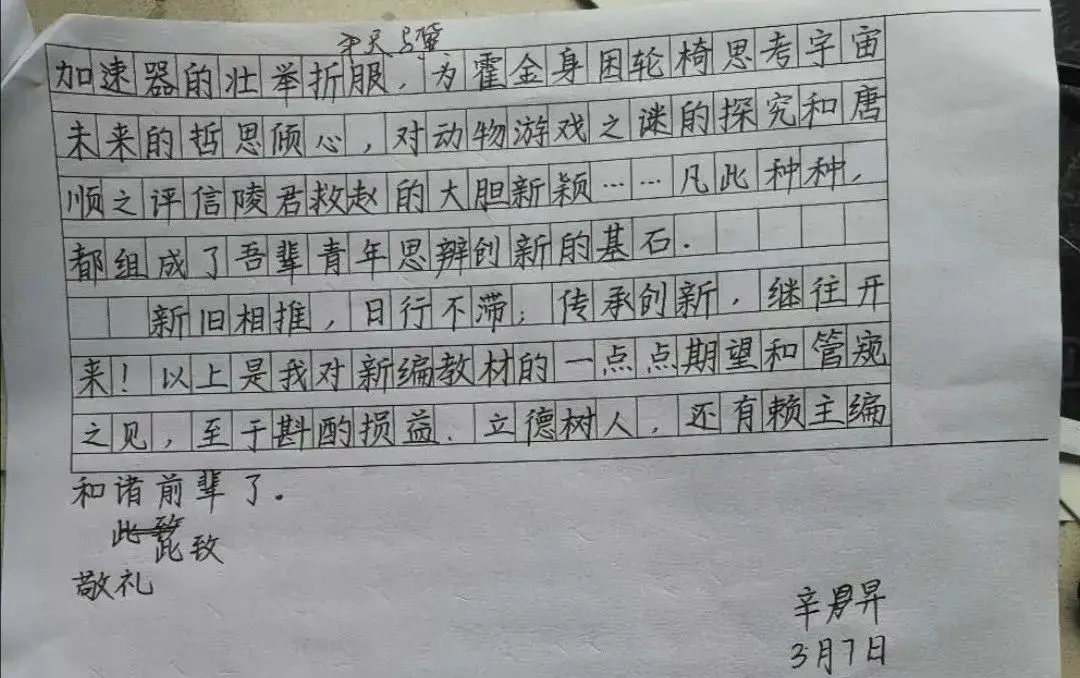 加速器的壮举折服,为霍金身困轮椅思考宇宙
未来的哲思倾心,对动物游戏之谜的探究和唐
顺之评信陵君救赵的大胆新颖……凡此种种,
都组成了吾辈青年思辨创新的基石.
新旧相推,日行不滞;传承创新,继往开
来!以上是我对新编教材的一点点期望和管窥
之见,至于斟酌损益.立德树人,还有赖主编
和诸前辈了.
此致
此致
敬礼
辛 昇
3月7日